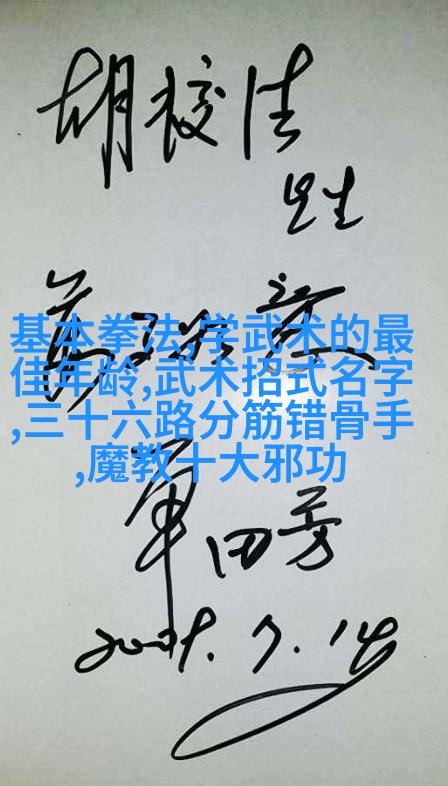 先生
基本拳法,学武术的最
佳年龄,武术招式名字
,三十六路分筋错骨手
,魔教十大邪功
单田芳
7.14